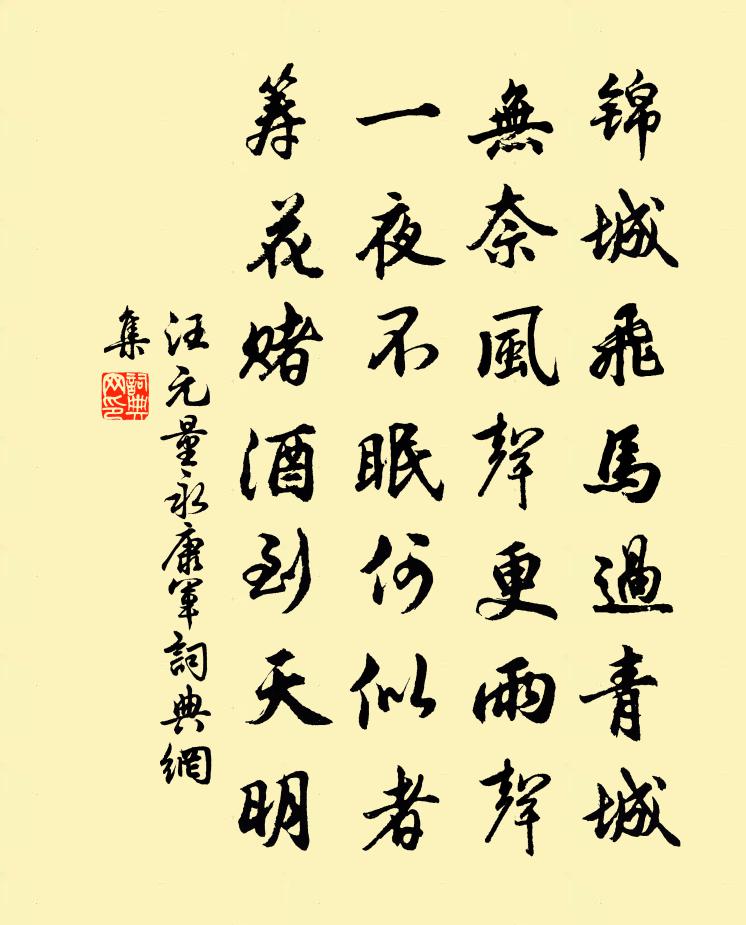 锦城飛馬過青城
無奈風聲更雨聲
一夜不眠何似者
筭花賭酒到天明
汪元量永康軍詞典網
集
詞典
网印